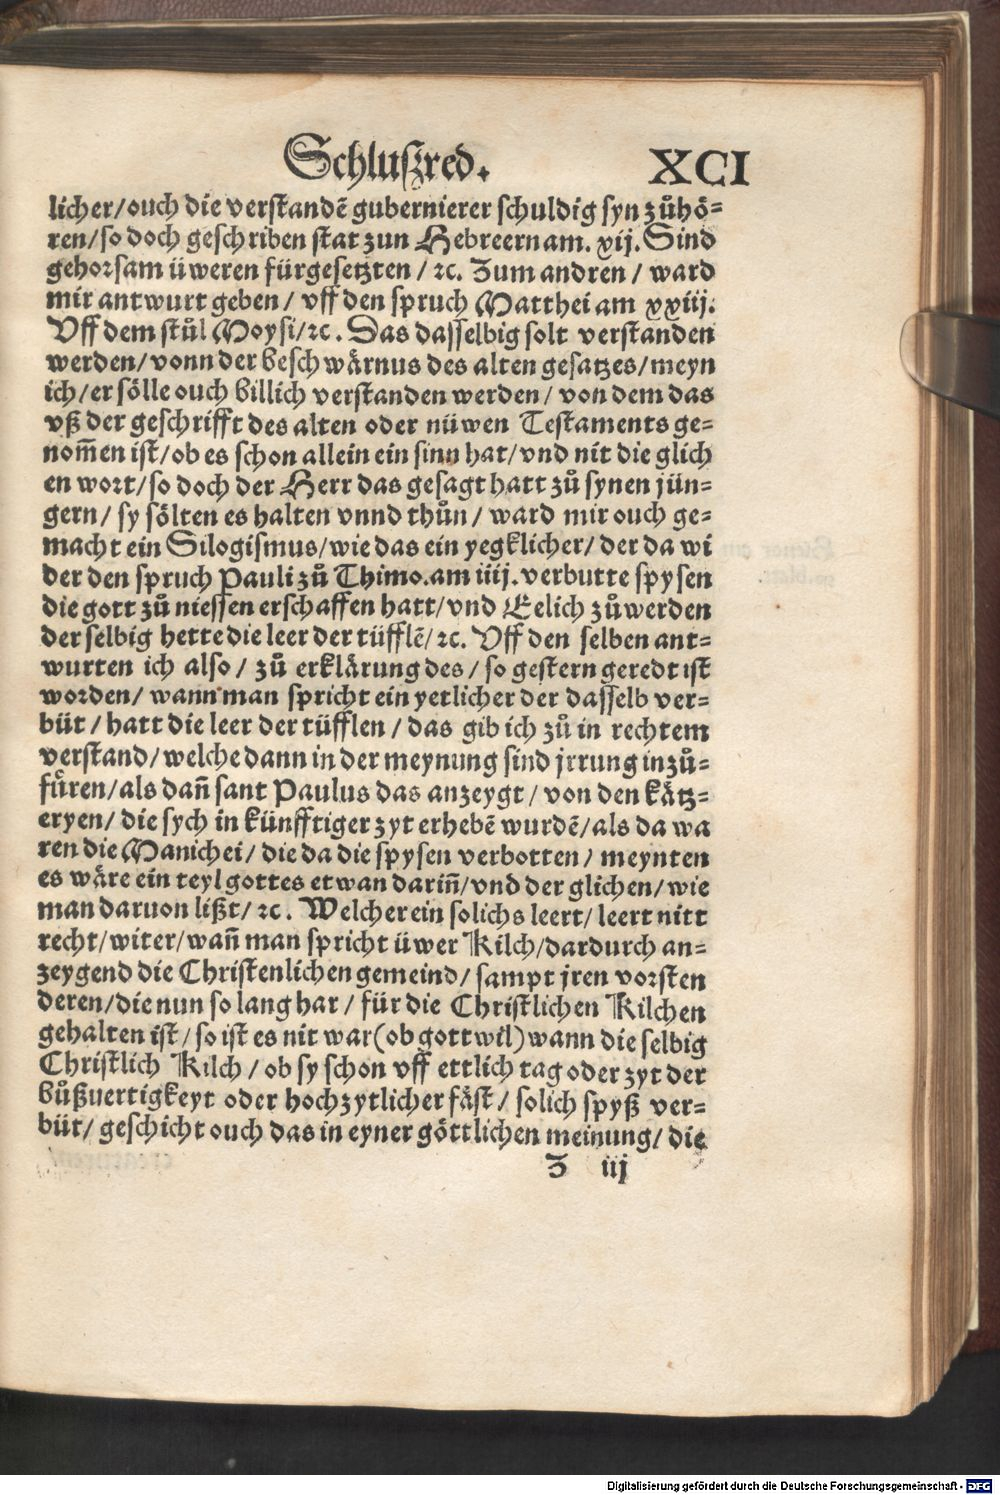 Schlußred. XCI
licher/ouch die verstandẽ gubernierer schuldig syn zůhö-
ren/so doch geschriben stat zun Hebreern am. xij. Sind
gehorsam üweren fürgesetzten / ꝛc. Zum andren / ward
mir antwurt geben / vff den spruch Matthei am xxiij.
Vff dem stůl Moysi/ꝛc. Das dasselbig solt verstanden
werden/vonn der beschwärnus des alten gesatzes/meyn
ich/er sölle ouch billich verstanden werden/ von dem das
vß der geschrifft des alten oder nüwen Testaments ge-
nom̃en ist/ob es schon allein ein sinn hat/vnd nit die glich
en wort/so doch der Herr das gesagt hatt zů synen jün-
gern/ sy sölten es halten vnnd thůn / ward mir ouch ge-
macht ein Silogismus/wie das ein yegklicher/der da wi
der den spruch Pauli zů Thimo.am iiij. verbutte spysen
die gott zů niessen erschaffen hatt/vnd Eelich zůwerden
der selbig hette die leer der tüfflẽ/ꝛc. Vff den selben ant-
wurten ich also / zů erklärung des/so gestern geredt ist
worden/ wann man spricht ein yetlicher der dasselb ver-
büt / hatt die leer der tüfflen / das gib ich zů in rechtem
verstand/welche dann in der meynung sind jrrung inzů-
fůren/als dañ sant Paulus das anzeygt / von den kätz-
eryen/ die sych in künfftiger zyt erhebẽ wurdẽ/als da wa
ren die Manichei/ die da die spysen verbotten / meynten
es wäre ein teyl gottes etwan dariñ/vnd der glichen/wie
man daruon lißt/ ꝛc. Welcher ein solichs leert/leert nitt
recht/witer/wañ man spricht üwer Kilch/dardurch an-
zeygend die Christenlichen gemeind/ sampt jren vorsten
deren/die nun so lang har / für die Christlichen Kilchen
gehalten ist/so ist es nit war(ob gott wil)wann die selbig
Christlich Kilch / ob sy schon vff ettlich tag oder zyt der
bůßuertigkeyt oder hochzytlicher fäst/ solich spyß ver-
büt/ geschicht ouch das in eyner göttlichen meinung/ die
Z iij
Digitalisierung gefördert durch die Deutsche Forschungsgemeinschaft - DFG